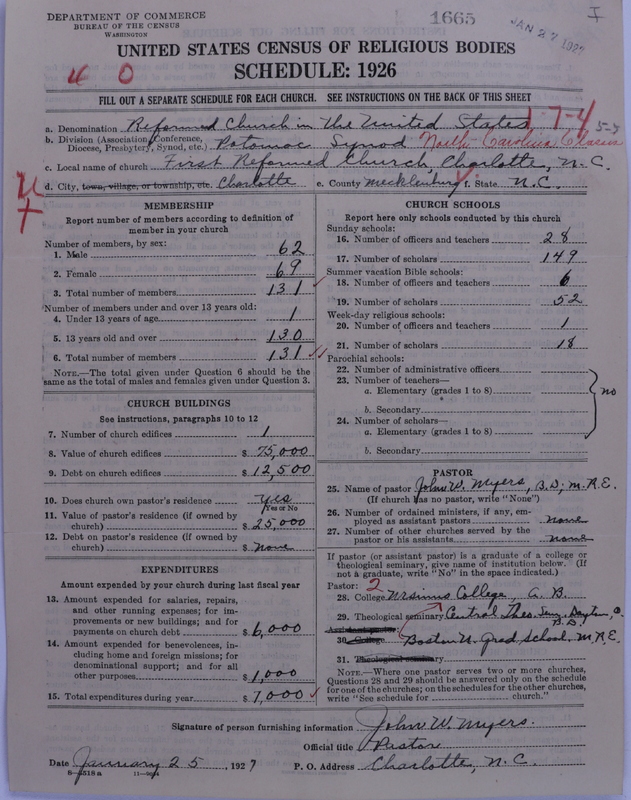 DEPARTMENT OF COMMERCE
BUREAU OF THE CENSUS
WASHINGTON
1665
JAN 27 1927
I
UNITED STATES CENSUS OF RELIGIOUS BODIES
SCHEDULE: 1926
4 0
FILL OUT A SEPARATE SCHEDULE FOR EACH CHURCH. SEE INSTRUCTIONS ON THE BACK OF THIS SHEET
1-7-4
a. Denomination Reformed Church in the United States
b. Division (Association, Conference, Diocese, Presbytery, Synod, etc.) Potomac Synod North Carolina Classis
c. Local name of church First Reformed Church, Charlotte, N.C.
d. City, town, village, or township, etc. Charlotte e. County Mecklenburg f. State N.C.
MEMBERSHIP
Report number of members according to definition of
member in your church
Number of members, by sex:
1. Male 62
2. Female 69
3. Total number of members 131
Number of members under and over 13 years old:
4. Under 13 years of age 1
5. 13 years old and over 130
6. Total number of members 131
NOTE.—The total given under Question 6 should be the
same as the total of males and females given under Question 3.
CHURCH BUILDINGS
See instructions, paragraphs 10 to 12
7. Number of church edifices 1
8. Value of church edifices $ 75,000
9. Debt on church edifices $ 12,500
10. Does church own pastor's residence yes
Yes or No
11. Value of pastor's residence (if owned by
church) $ 25,000
12. Debt on pastor's residence (if owned by
church) $ none
EXPENDITURES
Amount expended by your church during last fiscal year
13. Amount expended for salaries, repairs,
and other running expenses; for im-
provements or new buildings; and for
payments on church debt $ 6,000
14. Amount expended for benevolences, in-
cluding home and foreign missions; for
denominational support; and for all
other purposes $ 1,000
15. Total expenditures during year $ 7,000
CHURCH SCHOOLS
Report here only schools conducted by this church
Sunday schools:
16. Number of officers and teachers 28
17. Number of scholars 149
Summer vacation Bible schools:
18. Number of officers and teachers 6
19. Number of scholars 52
Week-day religious schools:
20. Number of officers and teachers 1
21. Number of scholars 18
Parochial schools:
22. Number of administrative officers
23. Number of teachers—
a. Elementary (grades 1 to 8)
no
b. Secondary
24. Number of scholars—
a. Elementary (grades 1 to 8)
b. Secondary
PASTOR
25. Name of pastor John W. Myers, B.D; M.R.E.
(If church has no pastor, write "None")
26. Number of ordained ministers, if any, em-
ployed as assistant pastors none
27. Number of other churches served by the
pastor or his assistants none
If pastor (or assistant pastor) is a graduate of a college or
theological seminary, give name of institution below. (If
not a graduate, write "No" in the space indicated.)
Pastor: 2
28. College Ursinus College, A.B.
29. Theological seminary Central Theo. Sem. Dayton, O.
B.D.
Assistant pastor:
30. College Boston U. Grad School. M.R.E.
31. Theological seminary
NOTE.—Where one pastor serves two or more churches,
Questions 28 and 29 should be answered only on the schedule
for one of the churches; on the schedules for the other churches,
write "See schedule for church."
Signature of person furnishing information John W. Myers.
Official title Pastor
Date January 25, 1927 P. O. Address Charlotte, N.C.